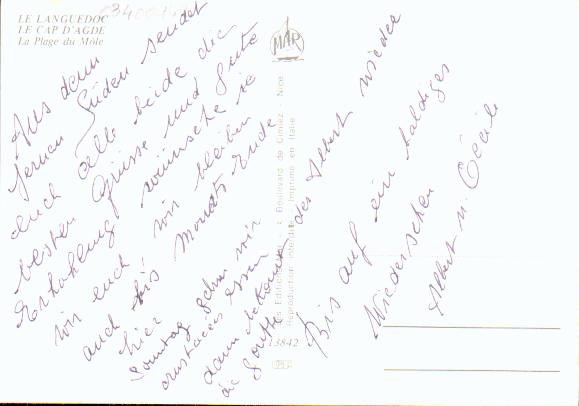 LE LANGUEDOC
LE CAP D'AGDE
La Plage du Môle
Aus dem
fernen Süden sendet
euch alle beide die
besten Grüsse und Gute
Erholung wünsche ie
wir euch wir bleiben
auch bis Monats Ende
hier
Sonntag gehn wir
crustacés essen
dann bekommt
die Souffle des Albert wieder
Bis auf ein baldiges
Wiedersehen
Albert u. Cécile
MAR
Les Editions Boulevard de Cimiez - Nice
Reproduction interdite - Imprimé en Italie
13842